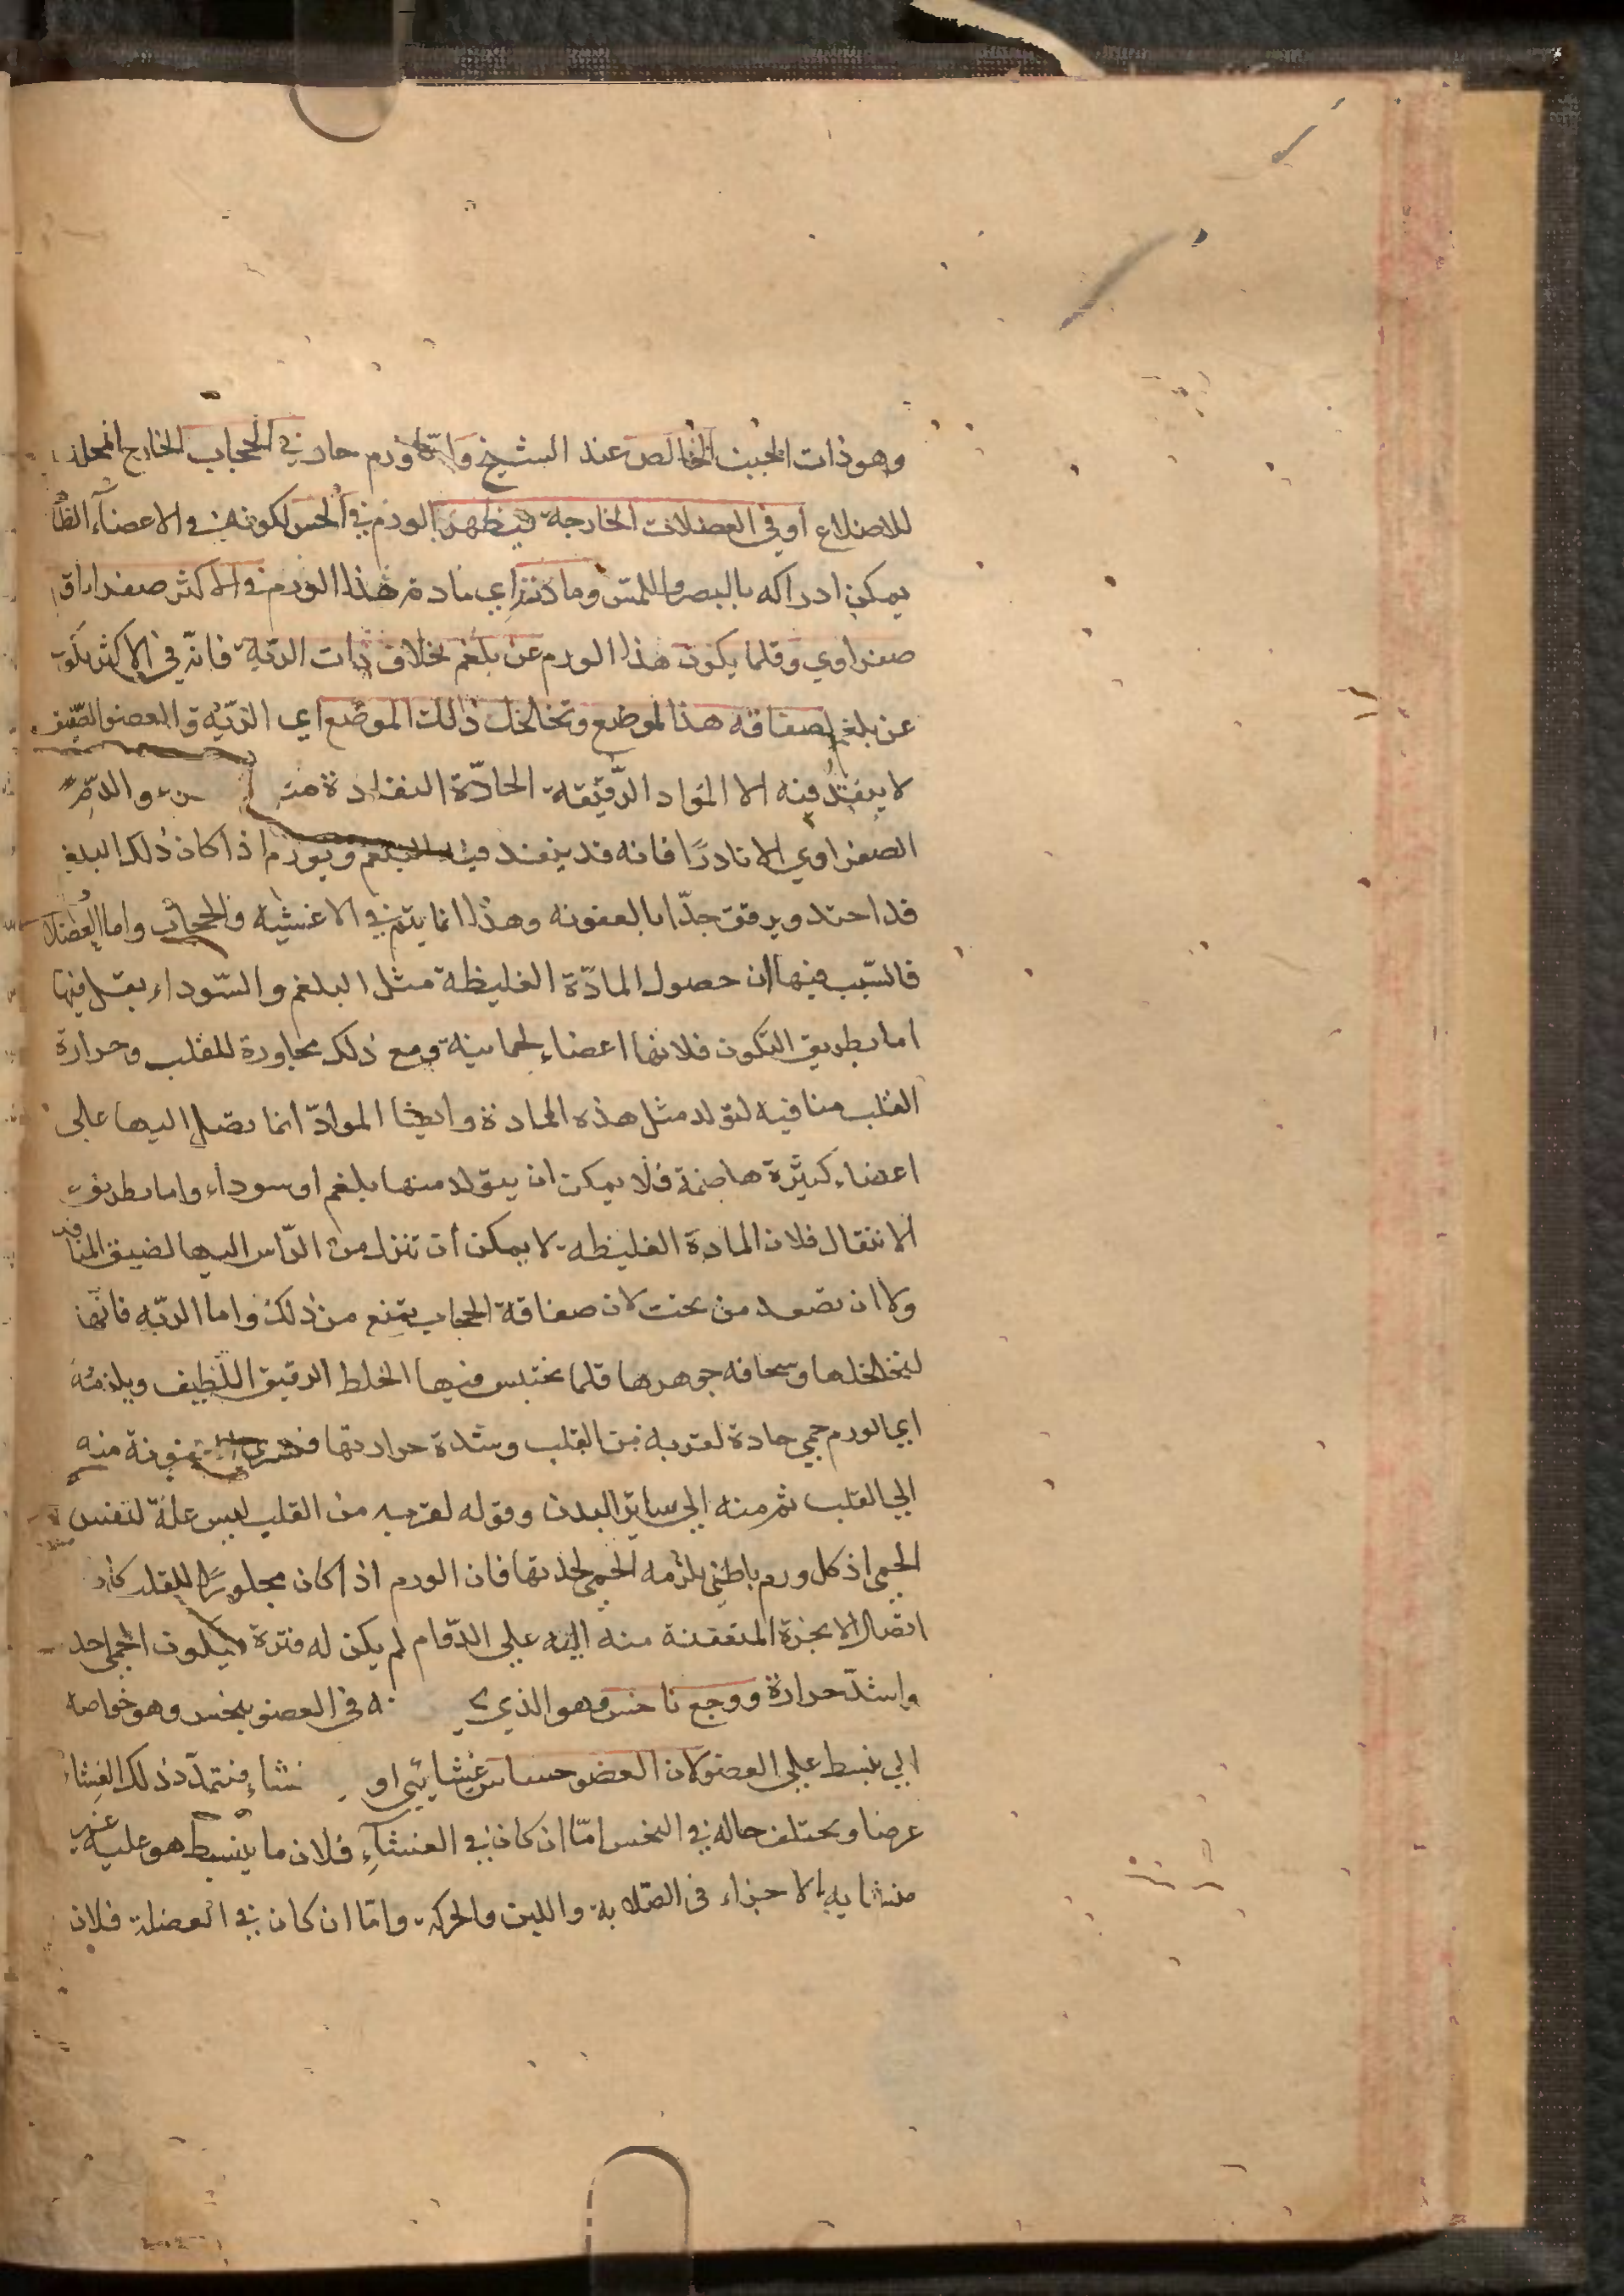 وهو ذات الجنب الخالص عند الشيخ واما ورم حار في الحجاب الخارج المجلل
للاضلاع او في العضلات الخارجة فيظهر الورم في الحس لكونه في الاعضاء
يمكن ادراكه بالبصر واللمس ومادته اي مادة هذا الورم في الاكثر صفراء او
صفراوي وقلما يكون هذا الورم عن بلغم بخلاف ذات الرية فانه في الاكثر يكون
عن بلغم لصفاقه هذا الموضع وتخلخل ذلك الموضع اي الريه والعضو الصفيق
لا ينفذ فيه الا المواد الرقيقه الحادة النفاذة والدم
الصفراوي الا نادرًا فانه قد ينفذ فيه البلغم ويورم اذا كان ذلك البلغم
قد احتد ويرقق جدّا بالعفونه وهذا انما يتم في الاغشيه والحجاب واما العضلات
فالسّبب فيها ان حصول المادّة الغليظة مثل البلغم والسّوداء يقل فيها
اما بطريق التكون فلانها اعضاء لحمانية ومع ذلك مجاورة للقلب وحرارة
القلب منافيه لتولد مثل هذه المادة وايضا الموادّ انما تصل اليها على
اعضاء كثيرة هاضمة فلا يمكن ان يتولد منها بلغم او سوداء واما بطريق
الانتقال فلان المادة الغليظه لا يمكن ان تنزل من الرّاس اليها لضيق المنافذ
ولا ان تصعد من تحت لان صفاقة الحجاب يمنع من ذلك واما الريّه فانّها
لتخلخلها وسخافه جوهرها قلما يحتبس فيها الخلط الرقيق اللّطيف ويلزمه
اي الورم حمي حادة لقربه من القلب وشدة حرارتها عفونة منه
الي القلب ثم منه الي ساير البدن وقوله لقربه من القلب ليس علة لنفس
الحمي اذ كل ورم باطني يلزمه الحمى لحدتها فان الورم اذا كان مجاورًا للقلب كان
اتصال الابخرة المتعفنة منه اليه علي الدّوام لم يكن له فترة فيكون الحمى احد
واشدّ حرارة ووجع ناخس وهو الذي في العضو بنخس وهو خواصه
الي ينبسط علي العضو لان العضو حساس غشايي او غشاء فتمدّد ذلك الغشاء
عرضا ويختلف حاله في النخس امّا ان كان في الغشاء فلان ما ينبسط هو عليه غير
متشابه الاجزاء في الصّلابة واللين والحركة وامّا ان كان في العضلة فلان